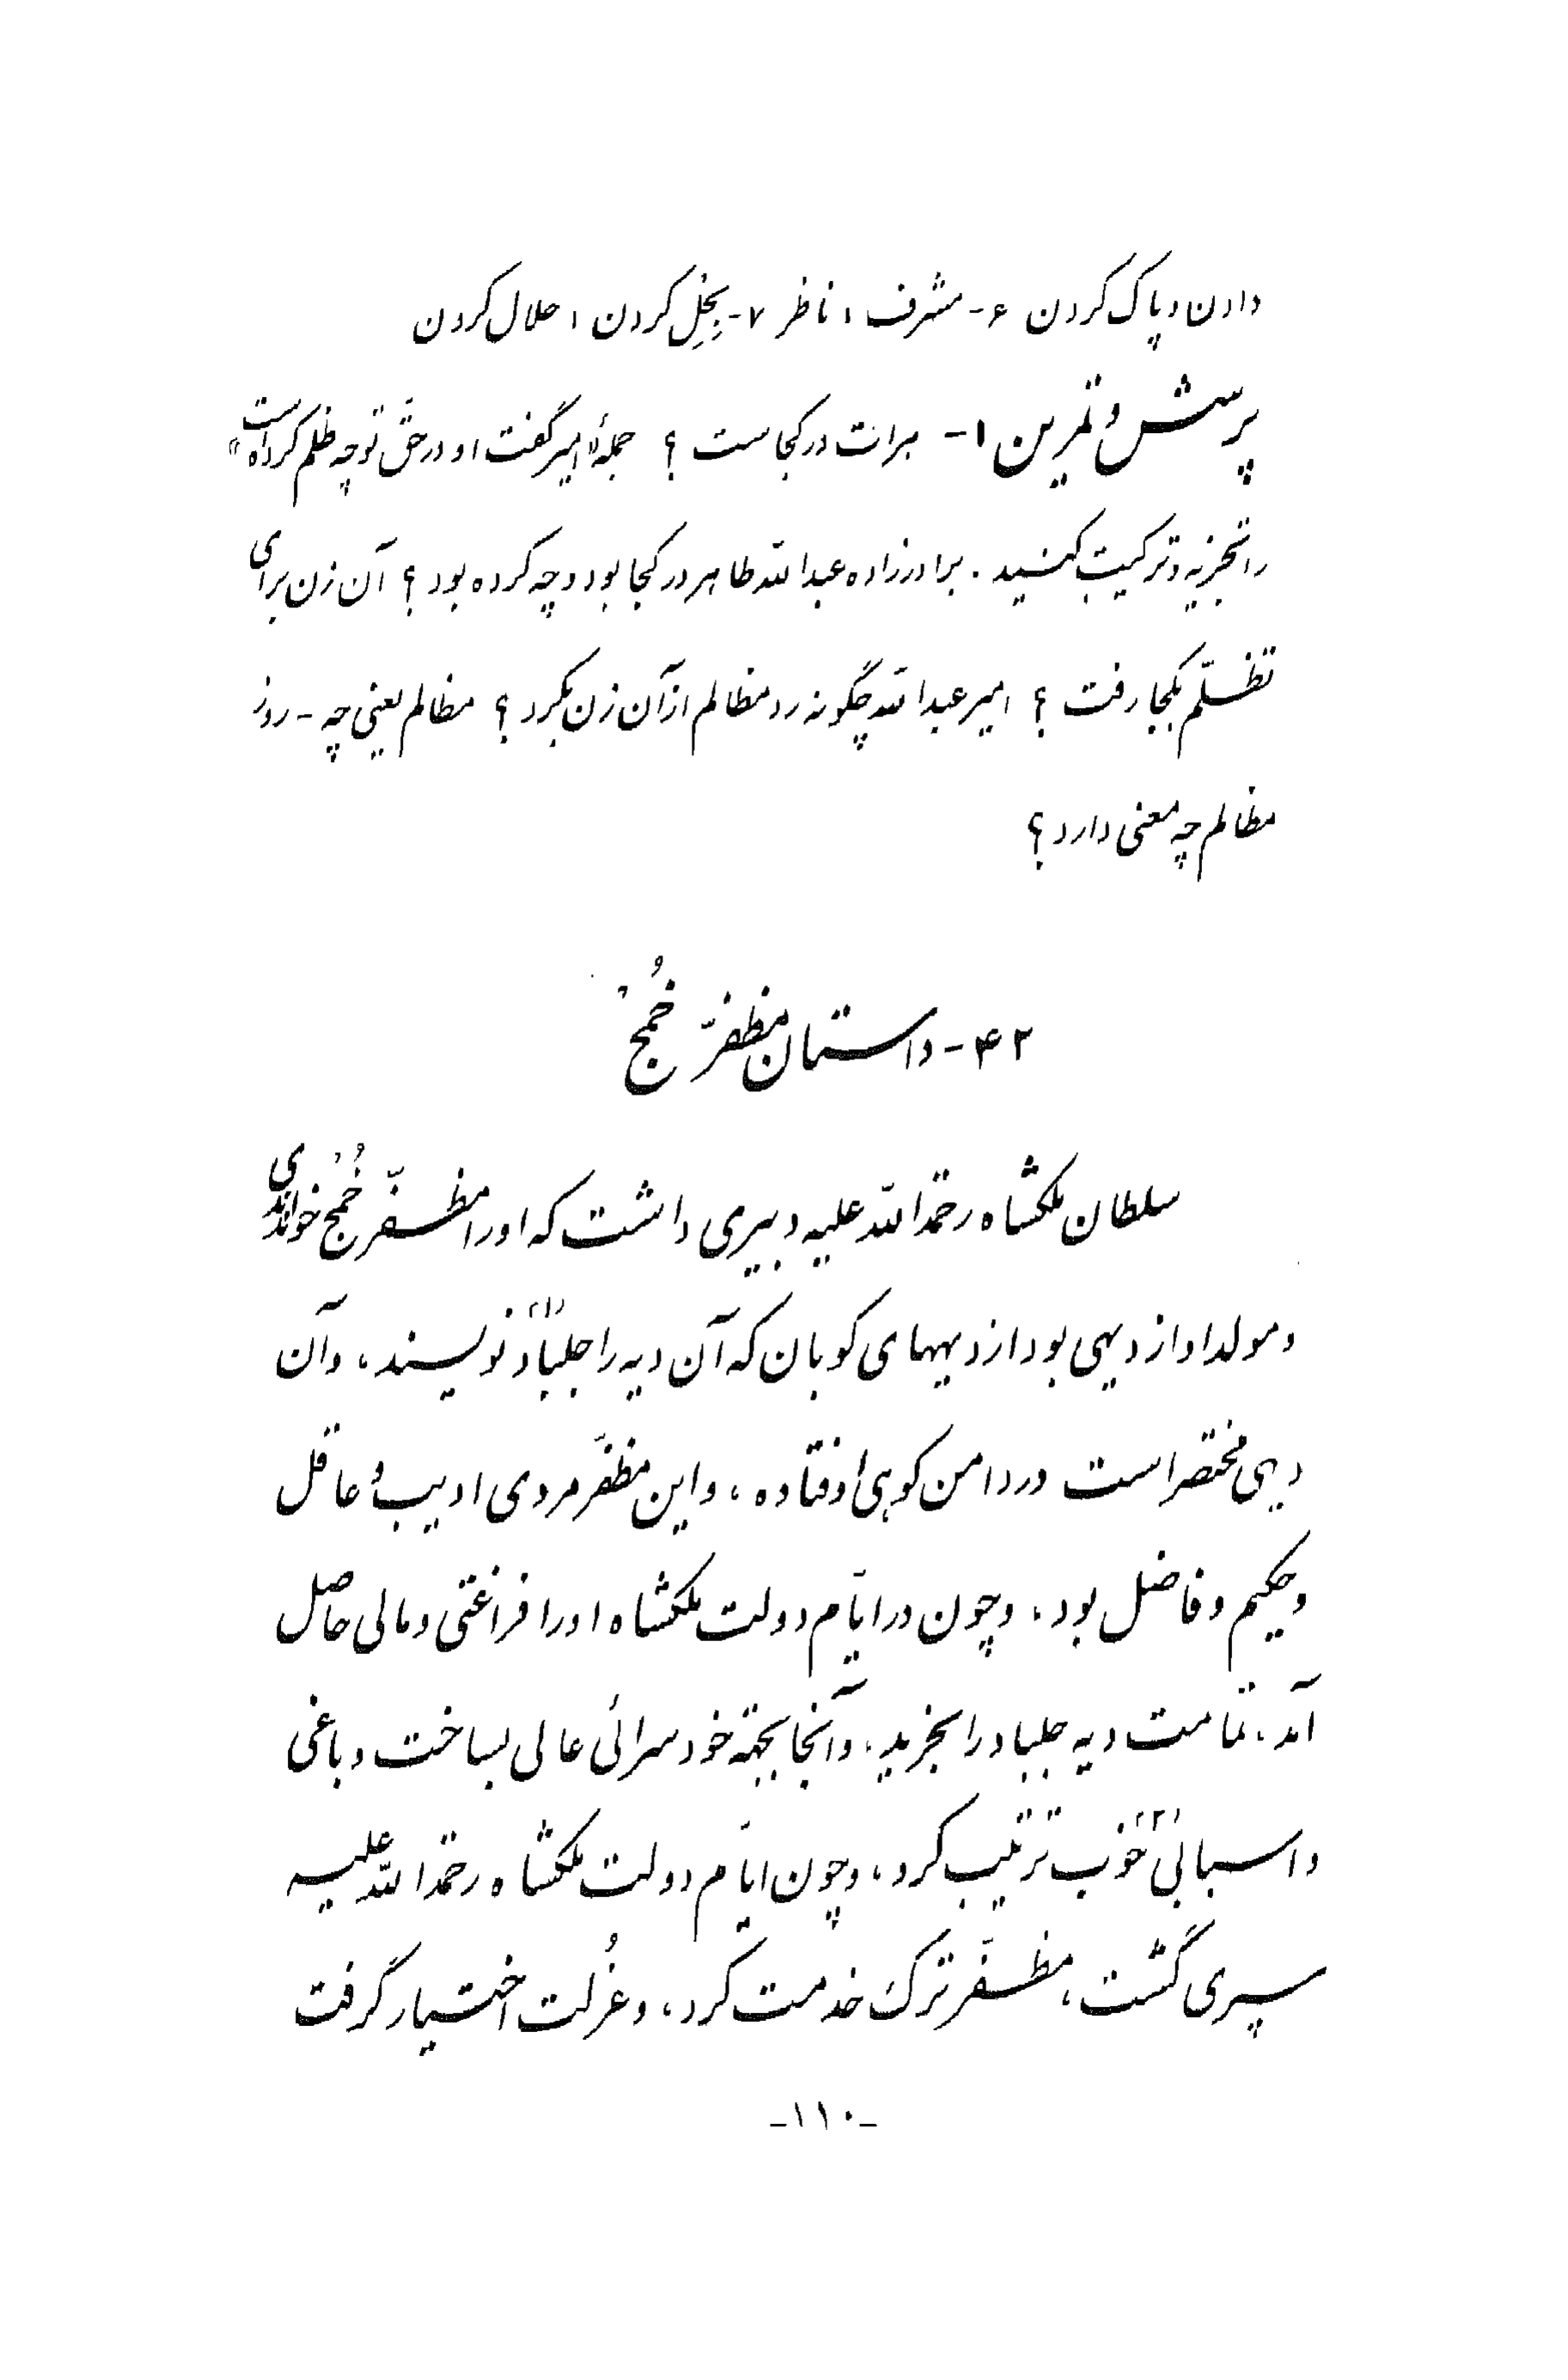 دادن و پاک کردن ۶- مشرف ، ناظر ۷- بِحِلّ کردن ، حلال کردن
پرسش و تمرین ۱- هرات در کجاست ؟ جملهٔ «امیر گفت او در حقّ تو چه ظلم کرده است»
را تجزیه و ترکیب کنید . برادرزاده عبدالله طاهر در کجا بود و چه کرده بود ؟ آن زن برای
تظلّم بکجا رفت ؟ امیر عبدالله چگونه رد مظالم از آن زن بکرد ؟ مظالم یعنی چه - روز
مظالم چه معنی دارد ؟
۴۲- داستان مظفّر خُمْج
سلطان ملکشاه رحمة الله علیه دبیری داشت که او را مظفّر خُمْج خواندندی
و مولد او از دیهی بود از دیههای کوبان که آن دیه را جلباد (۱) نویسند ، و آن
دیهی مختصر است در دامن کوهی اوفتاده ، و این مظفّر مردی ادیب و عاقل
و حکیم و فاضل بود ، و چون در ایّام دولت ملکشاه او را فراغتی و مالی حاصل
آمد ، تمامت دیه جلباد را بخرید ، و آنجا بجهة خود سرائی عالی بساخت و باغی
و اسبابی (۲) خوب ترتیب کرد ، و چون ایّام دولت ملکشاه رحمة الله علیه
سپری گشت ، مظفّر ترک خدمت کرد ، و عُزلت اختیار گرفت
-۱۱۰-